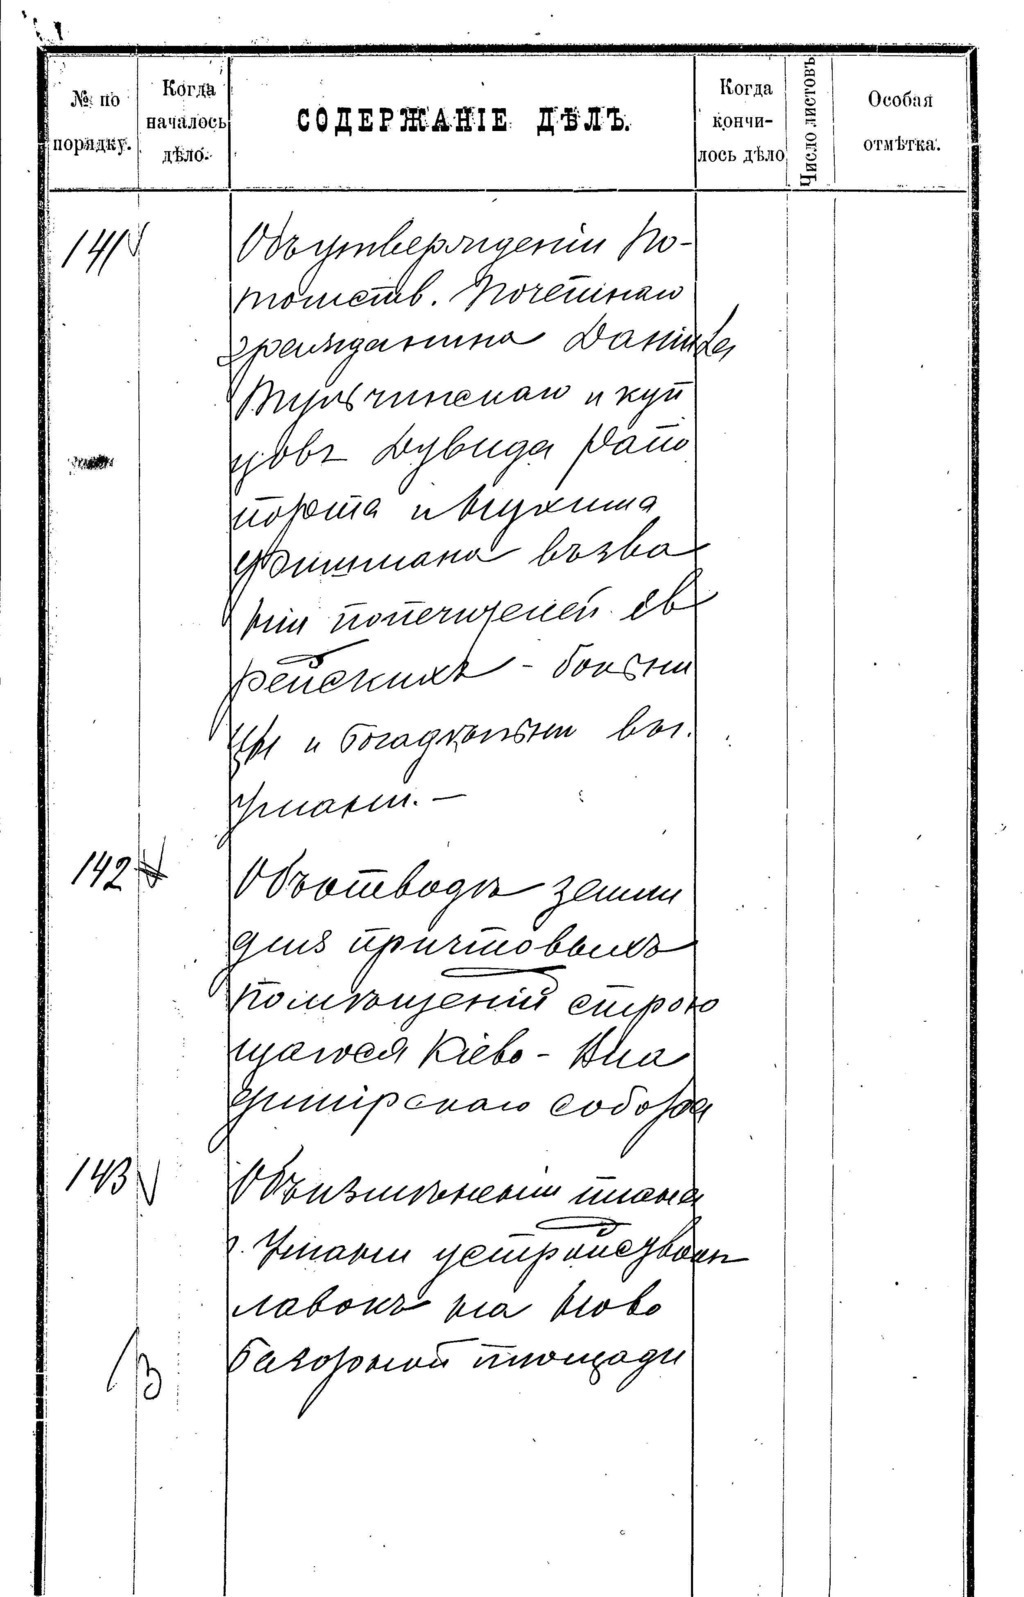 № по порядку.
Когда началось дѣло.
СОДЕРЖАНІЕ ДѢЛЪ.
Когда кончи-лось дѣло
Число листовъ
Особая отмѣтка.
141
Объ утвержденіи По-
томств. Почетнаго
гражданина Даніила
Тульчинскаго и куп
цовъ Дувида Рапо
порта и Нухима
Фишмана въ зва
ніи попечителей ев
рейскихъ - больни
цы и богадѣльни въ г.
Умани. —
142
Объ отводѣ земли
для причтовыхъ
помѣщеній строю
щагося Кіево - Вла
димірскаго собора
143
Объ измѣненіи плана
г. Умани устройствомъ
лавокъ на Ново
базарной площади